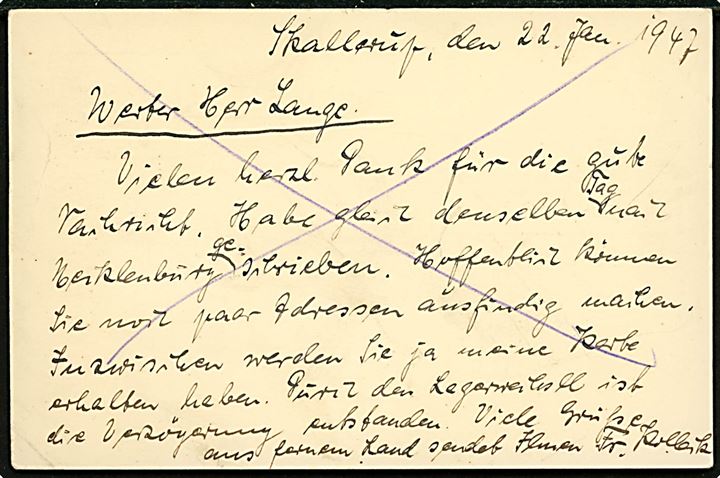 Skallerup, den 22. Jan. 1947
Werter Herr Lange.
Vielen herzl. Dank für die gute
Nachricht. Habe gleich denselben Tag nach
Mecklenburg ge-schrieben. Hoffentlich können
Sie noch paar Adressen ausfindig machen.
Inzwischen werden Sie ja meine Karte
erhalten haben. Durch den Lagerwechsel ist
die Verzögerung entstanden. Viele Grüsse
aus fernem Land sendet Ihnen Fr.